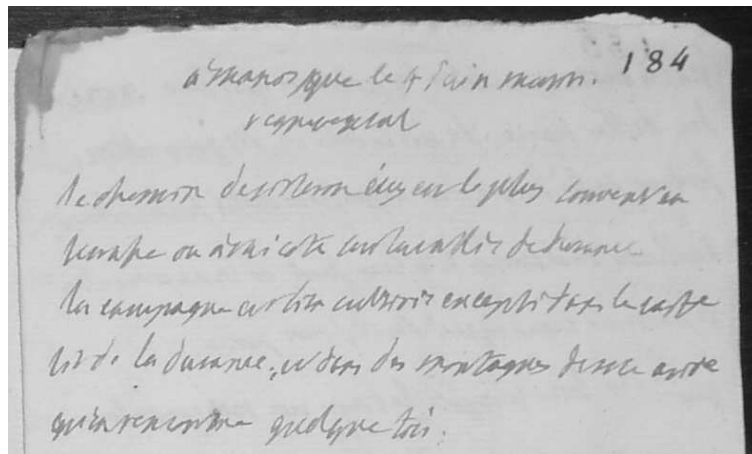 184
à manosque le 4 juin
le chemin de sisteron icy est le plus souvent en
rampe ou à mi cote sur la de durance
la campagne est bien cultivée excepté dans le vaste
lit de la durance, et dans des montagnes
qu'on rencontre quelque fois.